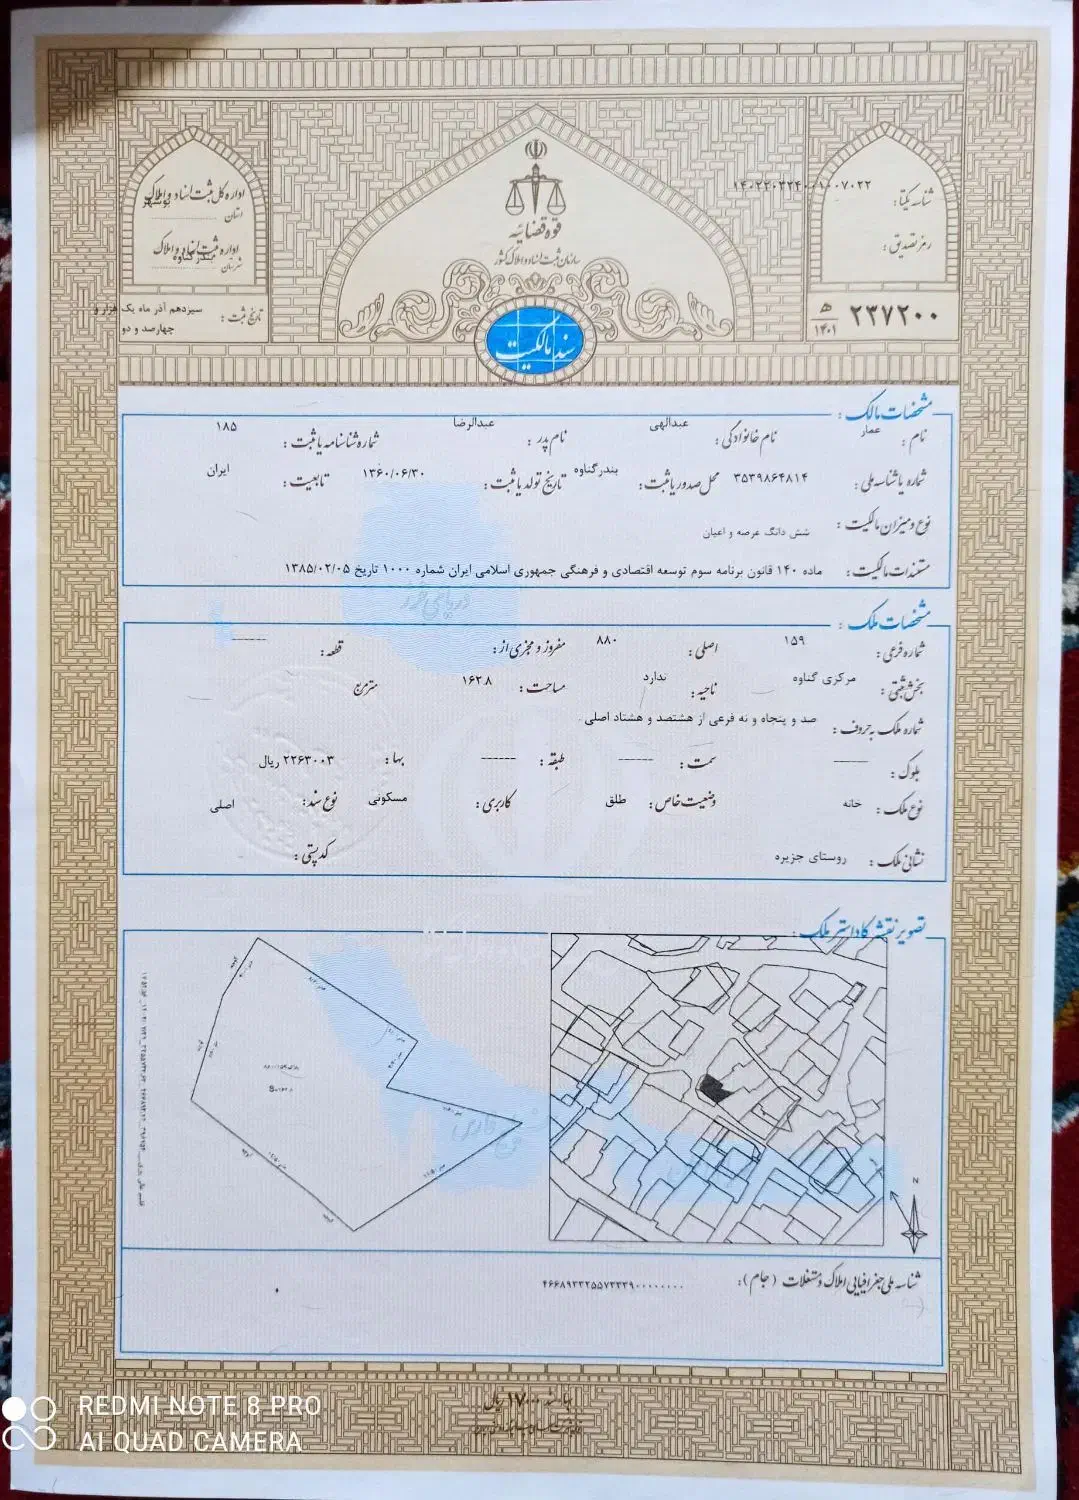 قوه قضائیه
سازمان ثبت اسناد و املاک کشور
سند مالکیت
شناسه یکتا:
رمز تصدیق:
۲۳۷۲۰۰
ه‍
۱۴۰۱
اداره کل ثبت اسناد و املاک
استان بوشهر
اداره ثبت اسناد و املاک
شهرستان بندر گناوه
تاریخ ثبت: سیزدهم آذر ماه یک هزار و
چهارصد و دو
مشخصات مالک:
نام: عمار نام خانوادگی: عبدالهی نام پدر: عبدالرضا شماره شناسنامه یا ثبت: ۱۸۵
شماره یا شناسه ملی: ۳۵۳۹۸۶۴۸۱۴ محل صدور یا ثبت: بندرگناوه تاریخ تولد یا ثبت: ۱۳۶۰/۰۶/۳۰ تابعیت: ایران
نوع و میزان مالکیت: شش دانگ عرصه و اعیان
مستندات مالکیت: ماده ۱۴۰ قانون برنامه سوم توسعه اقتصادی و فرهنگی جمهوری اسلامی ایران شماره ۱۰۰۰ تاریخ ۱۳۸۵/۰۲/۰۵
دریای خزر
مشخصات ملک:
شماره فرعی: ۱۵۹ اصلی: ۸۸۰ مفروز و مجزی از: ------ قطعه:
بخش ثبتی: مرکزی گناوه ناحیه: ندارد مساحت: ۱۶۲.۸ مترمربع
شماره ملک به حروف: صد و پنجاه و نه فرعی از هشتصد و هشتاد اصلی .
بلوک: ------ سمت: ------ طبقه: ------ بها: ۲۲۶۳۰۰۳ ریال
نوع ملک: خانه وضعیت خاص: طلق کاربری: مسکونی نوع سند: اصلی
نشانی ملک: روستای جزیره کدپستی:
تصویر نقشه کاداستر ملک:
خلیج فارس
N
شناسه ملی جغرافیایی املاک و مستغلات (جام): ۴۶۶۸۹۳۳۲۵۵۷۳۳۳۹۰۰۰۰۰۰۰۰
بهاء سند ۱۷۰۰۰ ریال
REDMI NOTE 8 PRO
AI QUAD CAMERA